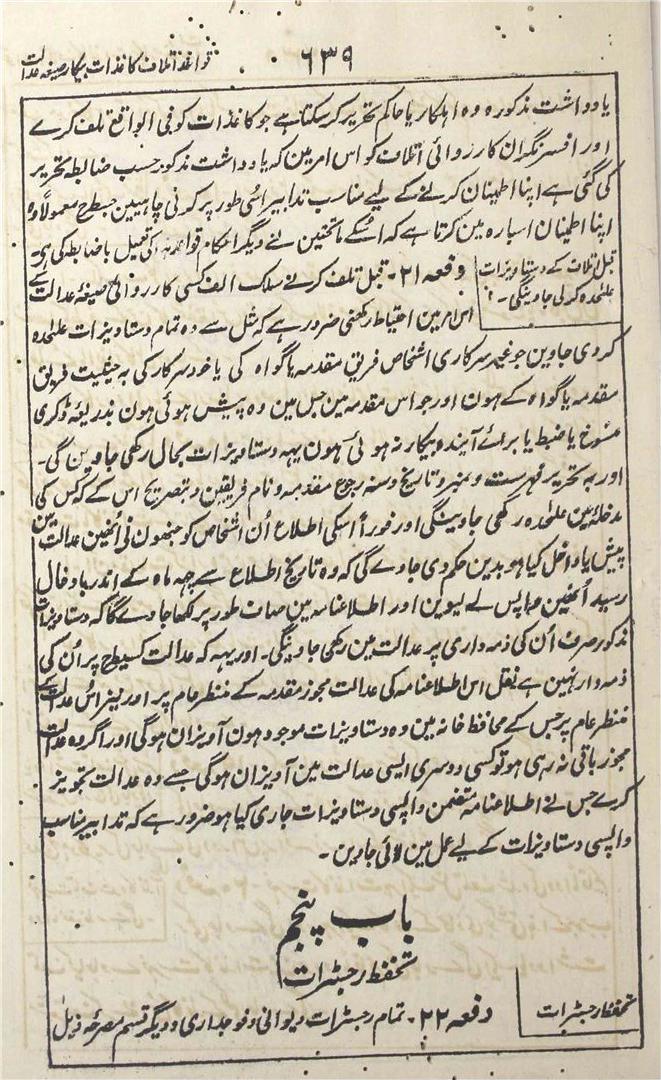 قواعد اتلاف کاغذات بیکار صیغہ عدالت
۶۳۹
یادداشت مذکورہ وہ اہلکار یا حاکم تحریر کرسکتا ہے جو کاغذات کو فی الواقع تلف کرے
اور افسر نگران کارروائی اتلاف کو اس امر مین کہ یادداشت مذکور حسب ضابطہ تحریر
کی گئی ہے اپنا اطمینان کرنے کے لیے مناسب تدابیر اسی طور پر کرنی چاہیین جسطرح معمولاً وہ
اپنا اطمینان اسبارہ مین کرتا ہے کہ اسکے ماتحتین نے دیگر احکام قواعد ہذا کی تعمیل باضابطہ کی ہی۔
قبل اتلاف کے دستاویزات
علٰحدہ کرلی جاوینگی۔
دفعہ ۲۱۔ قبل تلف کرنے سلک الف کسی کارروائی صیغۂ عدالت کے
اس امر مین احتیاط رکھنی ضرور ہے کہ مثل سے وہ تمام دستاویزات علٰحدہ
کردی جاوین جو غیر سرکاری اشخاص فریق مقدمہ یا گواہ کی یا خود سرکار کی بہ حیثیت فریق
مقدمہ یا گواہ کے ہون اور جو اس مقدمہ مین جس مین وہ پیش ہوئی ہون بذریعۂ ڈگری
منسوخ یا ضبط یا برائے آیندہ بیکار نہ ہوئی ہون یہہ دستاویزات بحال رکھی جاوین گی۔
اور بہ تحریر فہرست و نمبر و تاریخ و سنہ رجوع مقدمہ و نام فریقین و بتصریح اس کے کہ کس کی
مدخلہ ہین علٰحدہ رکھی جاوینگی اور فوراً اسکی اطلاع اُن اشخاص کو جنھون نی اُنھین عدالت مین
پیش یا داخل کیا ہو بدین حکم دی جاوے گی کہ وہ تاریخ اطلاع سے چہہ ماہ کے اندر بادخال
رسید اُنھین واپس لے لیوین اور اطلاعنامہ مین صاف طور پر لکھا جاوے گا کہ دستاویزات
مذکور صرف اُن کی ذمہ داری پر عدالت مین رکھی جاوینگی۔ اور یہہ کہ عدالت کسیطح پر اُن کی
ذمہ دار نہین ہے نقل اس اطلاعنامہ کی عدالت مجوز مقدمہ کے منظر عام پر اور نیز اُس عدالت کے
منظر عام پر جس کے محافظ خانہ مین وہ دستاویزات موجود ہون آویزان ہوگی اور اگر وہ عدالت
مجوز باقی نہ رہی ہو تو کسی دوسری ایسی عدالت مین آویزان ہوگی جسے وہ عدالت تجویز
کرے جس نے اطلاعنامہ متضمن واپسی دستاویزات جاری کیا ہو ضرور ہے کہ تدابیر مناسب
واپسی دستاویزات کے لیے عمل مین لائی جاوین۔
باب پنجم
تحفظ رجسٹرات
تحفظ رجسٹرات
دفعہ ۲۲۔ تمام رجسٹرات دیوانی و فوجداری و دیگر قسم مصرحۂ ذیل